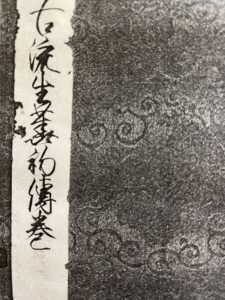 古流生花初傳巻